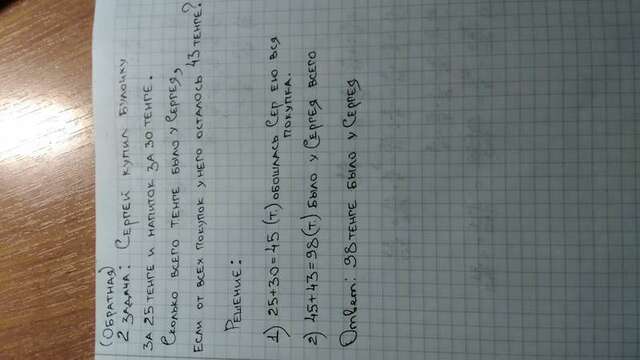 (Обратная)
2 задача: Сергей купил булочку
за 25 тенге и напиток за 30 тенге.
Сколько всего тенге было у Сергея,
если от всех покупок у него осталось 43 тенге?
Решение:
1) 25+30=45 (т.) обошлась Сергею вся
покупка.
2) 45+43=98 (т.) было у Сергея всего
Ответ: 98 тенге было у Сергея